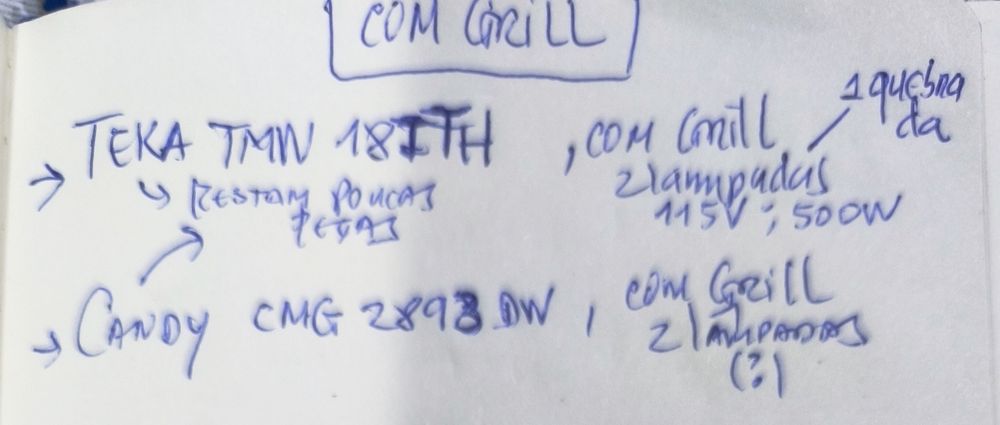 COM GRILL
TEKA TMW 18ITH , COM Grill
1 quebra
da
2 lampadas
RESTAM POUCAS
PEÇAS
115V ; 500W
CANDY CMG 2893 DW , COM Grill
2 lAMPADAS
(?)